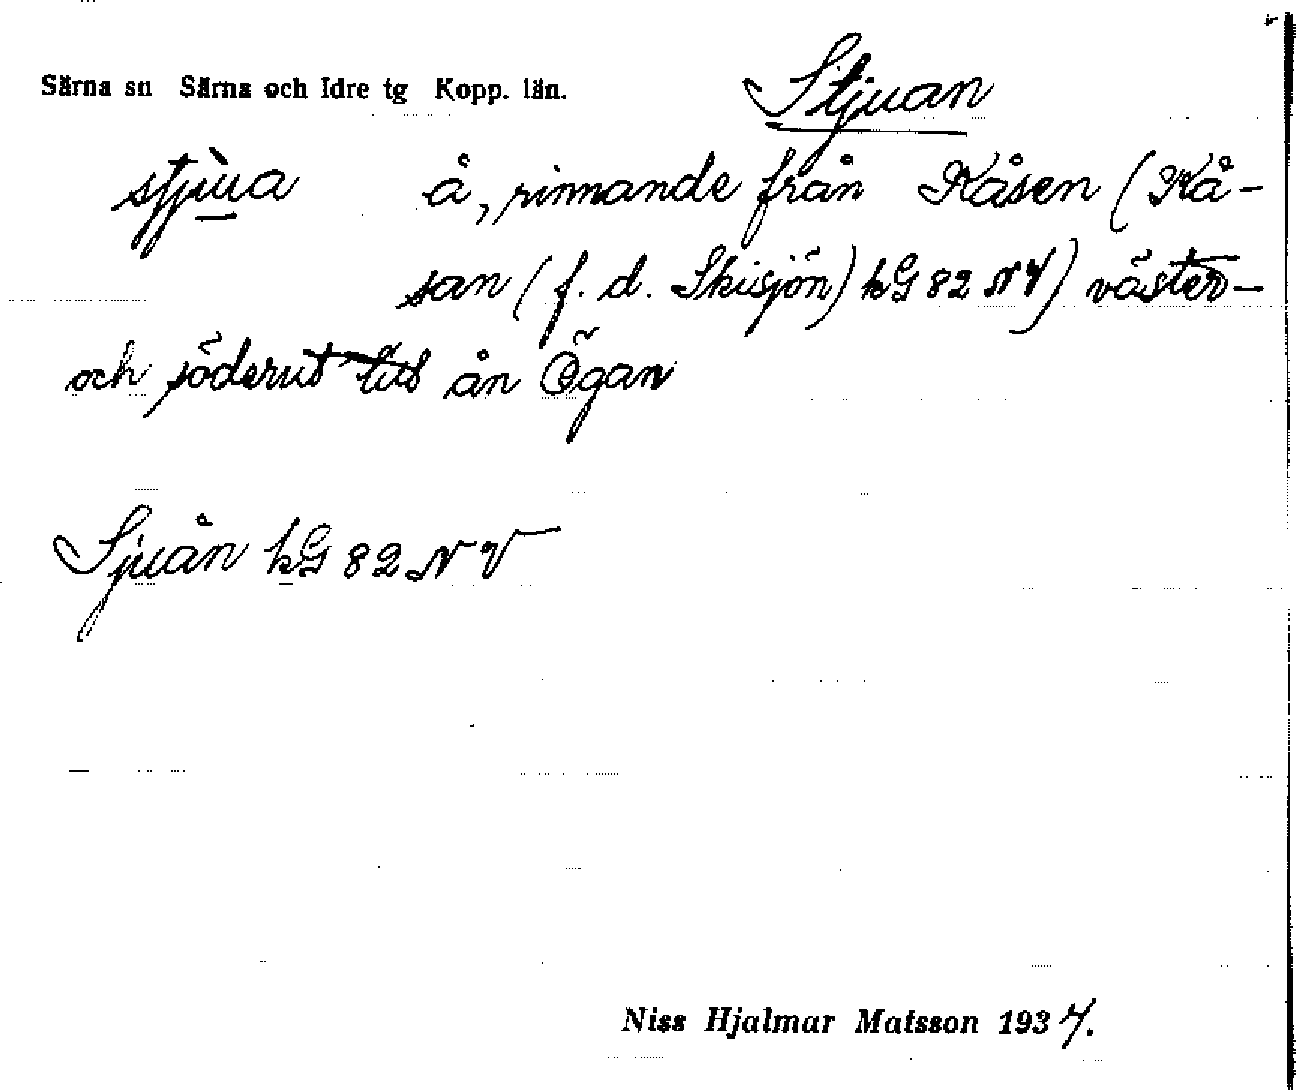 Särna sn Särna och Idre tg Kopp. län.
Stjuan
stjùa å, rinnande från Kåsen (Kå-
san (f. d. Skisjön) kG 82 NV) väster-
och söderut till ån Ögan
Sjuån kG 82 NV
Niss Hjalmar Matsson 1937.